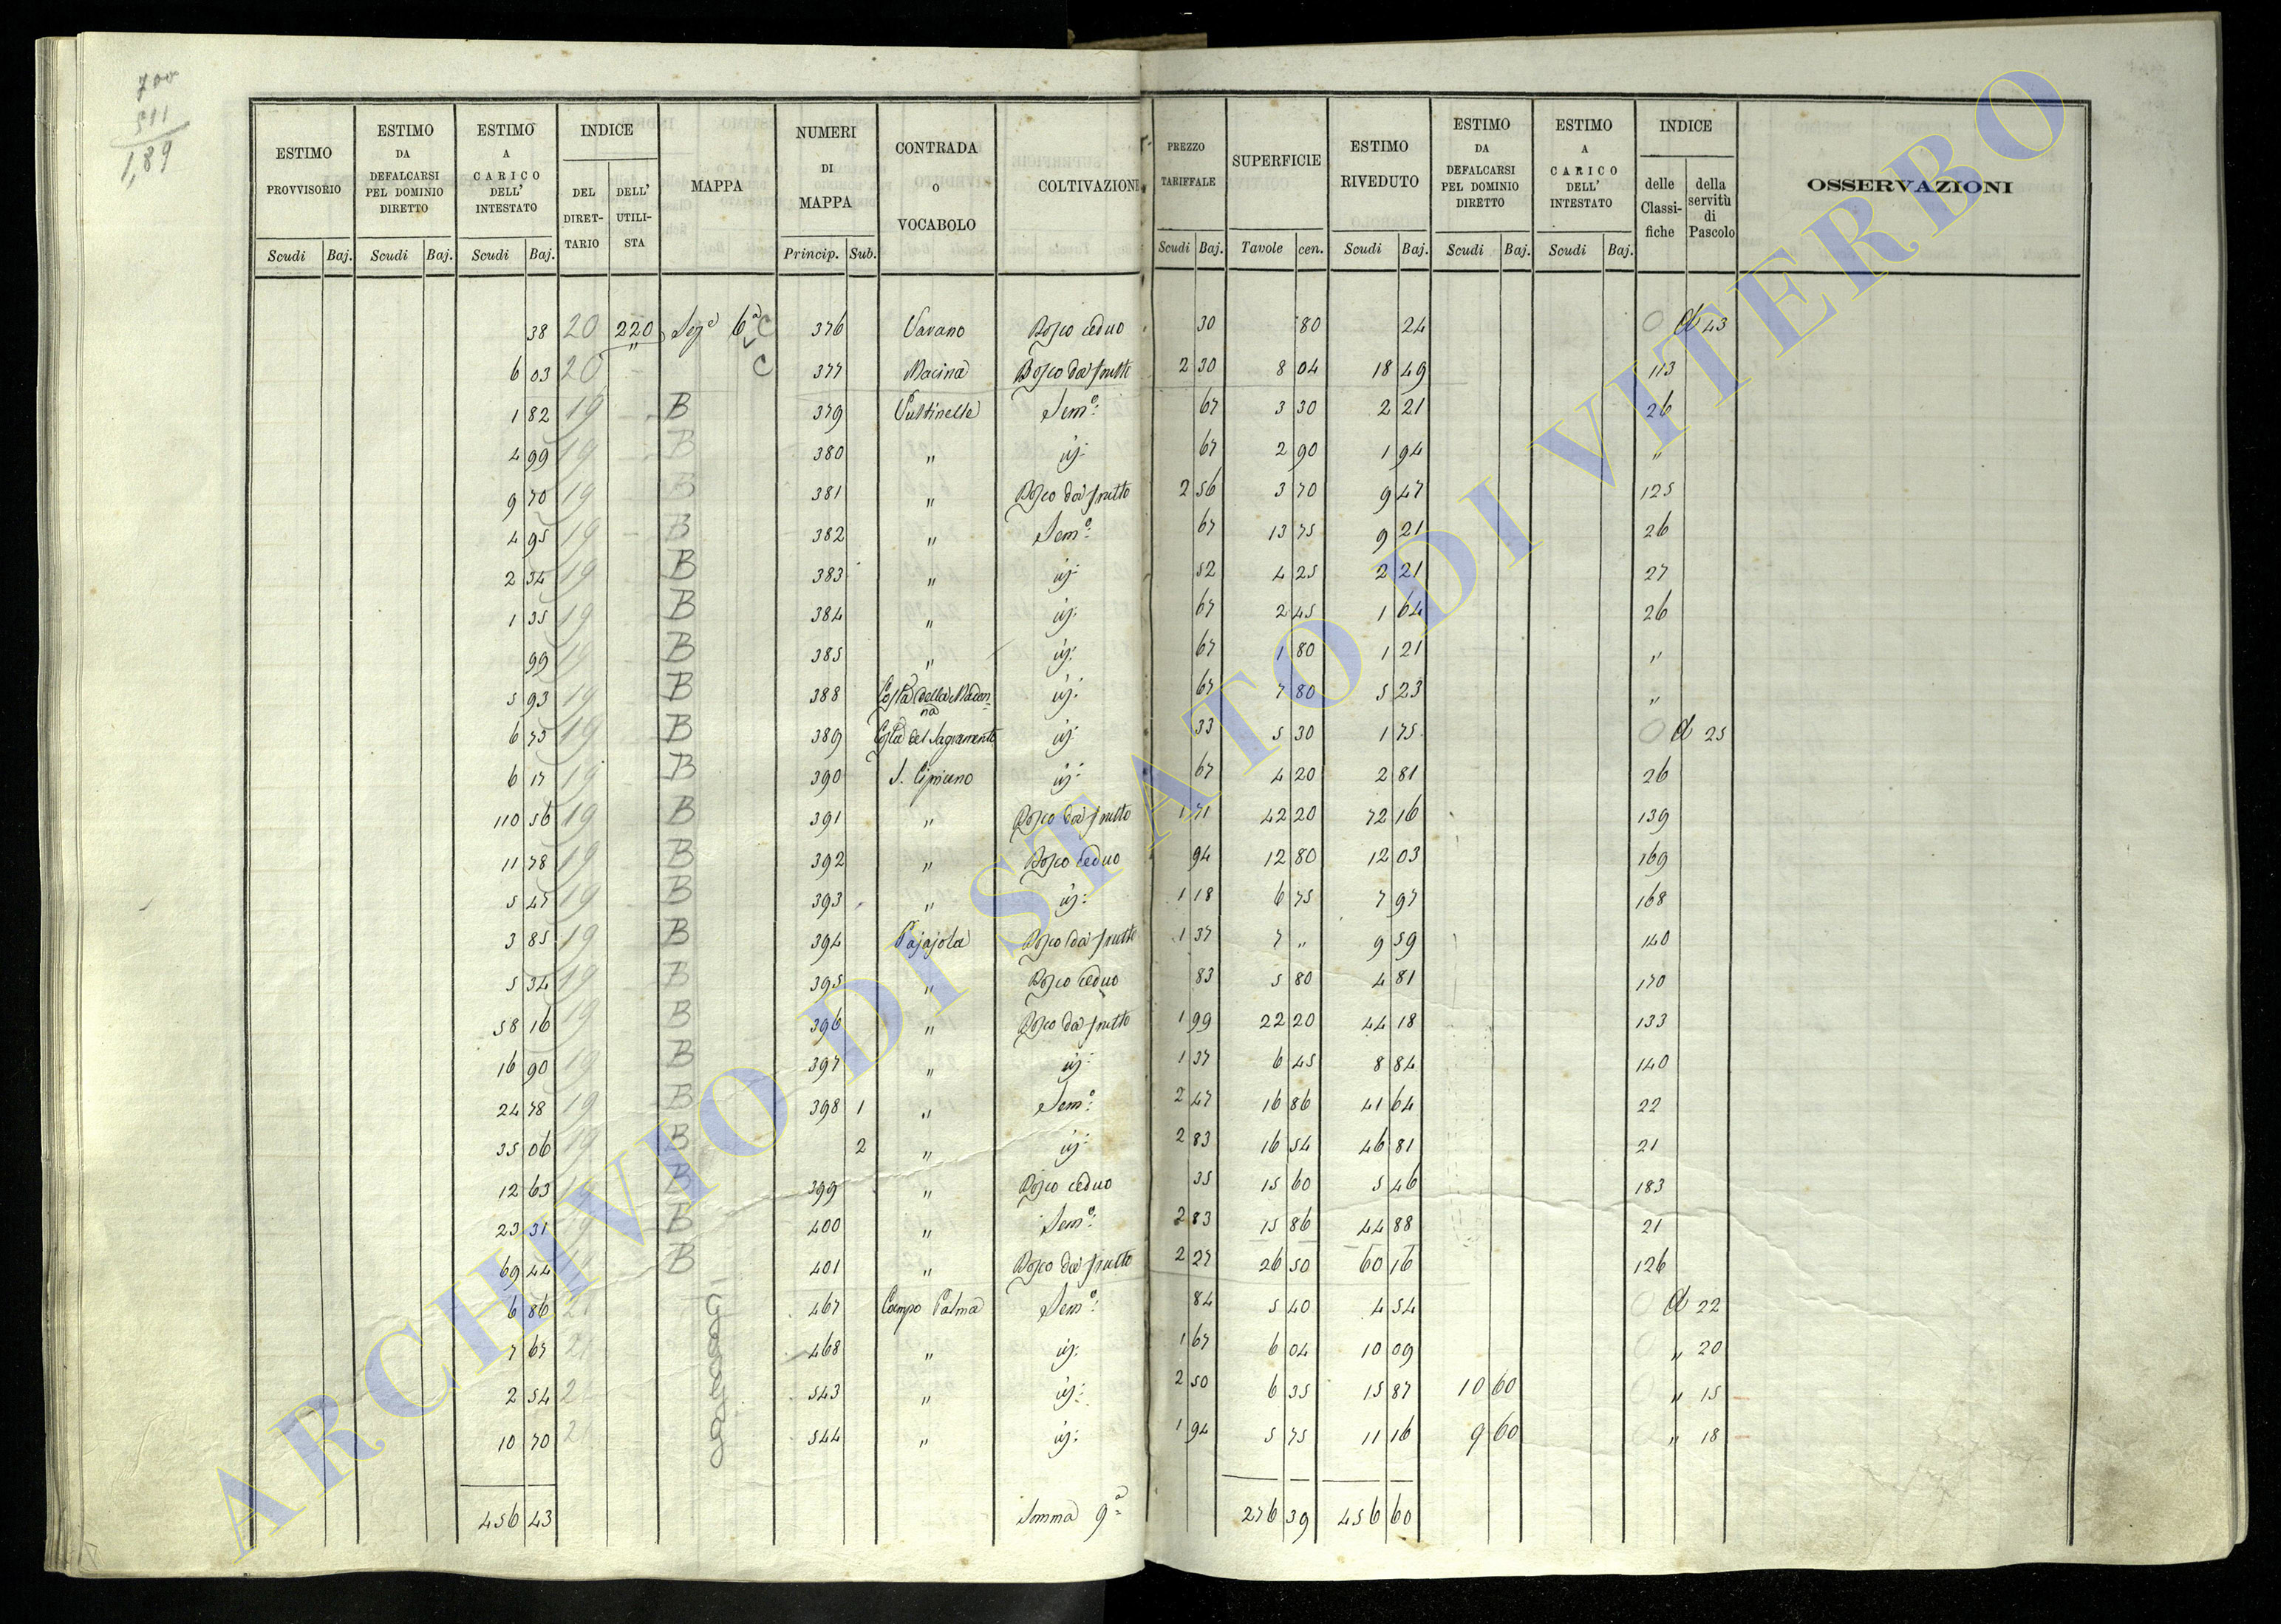 700
511
1,89
ESTIMO PROVVISORIO | ESTIMO DA DEFALCARSI PEL DOMINIO DIRETTO | ESTIMO A CARICO DELL' INTESTATO | INDICE | MAPPA | NUMERI DI MAPPA | CONTRADA O VOCABOLO | COLTIVAZIONE | PREZZO TARIFFALE | SUPERFICIE | ESTIMO RIVEDUTO | ESTIMO DA DEFALCARSI PEL DOMINIO DIRETTO | ESTIMO A CARICO DELL' INTESTATO | INDICE | OSSERVAZIONI
DEL DIRETTARIO | DELL' UTILISTA | delle Classifiche | della servitù di Pascolo
Scudi | Baj. | Scudi | Baj. | Scudi | Baj. | Princip. | Sub. | Scudi | Baj. | Tavole | cen. | Scudi | Baj. | Scudi | Baj. | Scudi | Baj.
38 | 20 | 220 | Sez.e 6a C | 376 | Vavano | Bosco ceduo | 30 | 80 | 24 | 0 | d 43
6 03 | 20 | " | C | 377 | Macina | Bosco da frutto | 2 30 | 8 04 | 18 49 | 113
1 82 | 19 | B | 379 | Pustinelle | Sem.o | 67 | 3 30 | 2 21 | 26
4 99 | 19 | B | 380 | " | id: | 67 | 2 90 | 1 94 | "
9 70 | 19 | B | 381 | " | Bosco da frutto | 2 56 | 3 70 | 9 47 | 125
4 95 | 19 | B | 382 | " | Sem.o | 67 | 13 75 | 9 21 | 26
2 34 | 19 | B | 383 | " | id: | 52 | 4 25 | 2 21 | 27
1 35 | 19 | B | 384 | " | id: | 67 | 2 45 | 1 64 | 26
99 | 19 | B | 385 | " | id: | 67 | 1 80 | 1 21 | "
5 93 | 19 | B | 388 | Costa della Madonna | id: | 67 | 7 80 | 5 23 | "
6 75 | 19 | B | 389 | Costa del Sagramento | id: | 33 | 5 30 | 1 75 | 0 | d 25
6 17 | 19 | B | 390 | S. Cipriano | id: | 67 | 4 20 | 2 81 | 26
110 56 | 19 | B | 391 | " | Bosco da frutto | 1 71 | 42 20 | 72 16 | 139
11 78 | 19 | B | 392 | " | Bosco ceduo | 94 | 12 80 | 12 03 | 169
5 47 | 19 | B | 393 | " | id: | 1 18 | 6 75 | 7 97 | 168
3 85 | 19 | B | 394 | Pajajola | Bosco da frutto | 1 37 | 7 " | 9 59 | 140
5 34 | 19 | B | 395 | " | Bosco ceduo | 83 | 5 80 | 4 81 | 170
58 16 | 19 | B | 396 | " | Bosco da frutto | 1 99 | 22 20 | 44 18 | 133
16 90 | 19 | B | 397 | " | id: | 1 37 | 6 45 | 8 84 | 140
24 78 | 19 | B | 398 | 1 | " | Sem.o | 2 47 | 16 86 | 41 64 | 22
35 06 | 19 | B | 2 | " | id: | 2 83 | 16 54 | 46 81 | 21
12 63 | 19 | B | 399 | " | Bosco ceduo | 35 | 15 60 | 5 46 | 183
23 31 | 19 | B | 400 | " | Sem.o | 2 83 | 15 86 | 44 88 | 21
69 44 | 19 | B | 401 | " | Bosco da frutto | 2 27 | 26 50 | 60 16 | 126
6 86 | 21 | 467 | Campo Palma | Sem.o | 84 | 5 40 | 4 54 | 0 | d 22
7 67 | 21 | 468 | " | id: | 1 67 | 6 04 | 10 09 | 0 | " 20
2 54 | 21 | 543 | " | id: | 2 50 | 6 35 | 15 87 | 10 60 | 0 | " 15
10 70 | 21 | 544 | " | id: | 1 94 | 5 75 | 11 16 | 9 60 | " 18
456 43 | Somma 9a | 276 39 | 456 60
ARCHIVIO DI STATO DI VITERBO